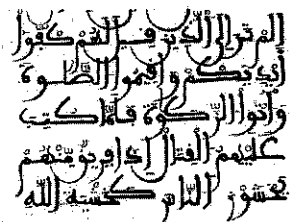 الم تر الى الذين قيل لهم كفوا
أيديكم وأقيموا الصلوة
وءاتوا الزكوة فلما كتب
عليهم القتال إذا فريق منهم
يخشون الناس كخشية الله